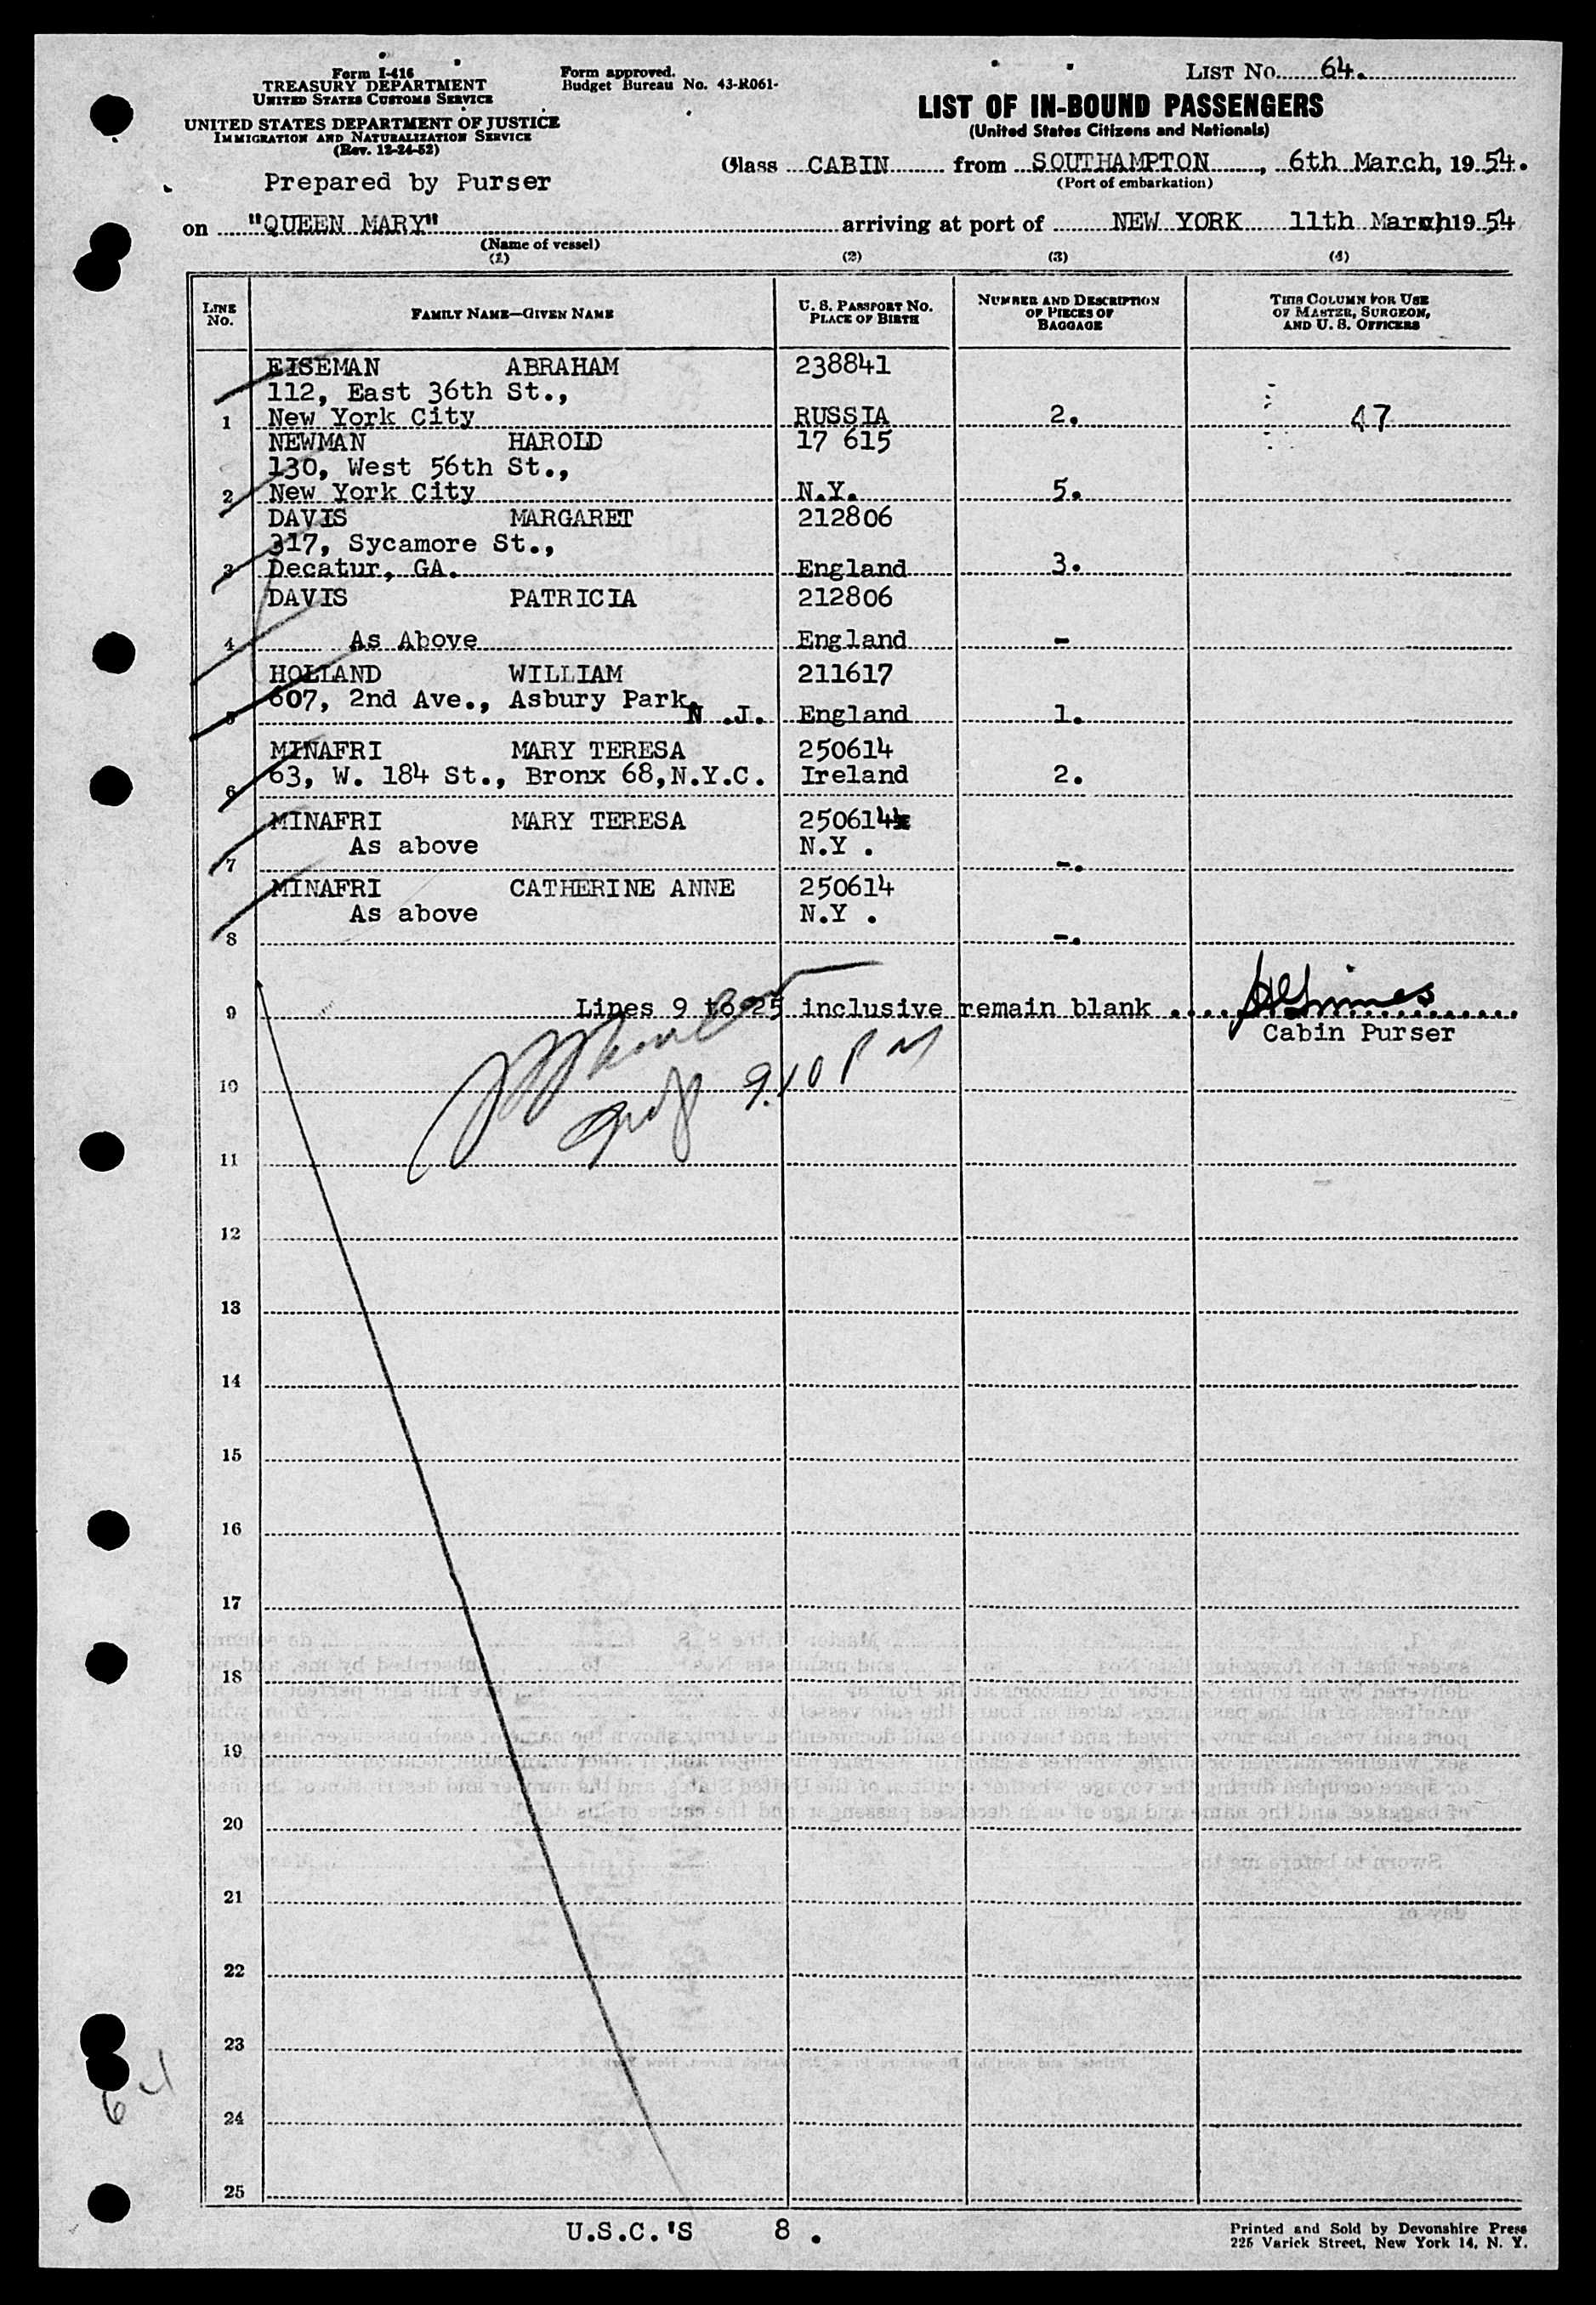 Form I-416
TREASURY DEPARTMENT
UNITED STATES CUSTOMS SERVICE
UNITED STATES DEPARTMENT OF JUSTICE
IMMIGRATION AND NATURALIZATION SERVICE
(Rev. 12-24-52)
Form approved.
Budget Bureau No. 43-R061-
LIST No. 64.
LIST OF IN-BOUND PASSENGERS
(United States Citizens and Nationals)
Prepared by Purser
Class CABIN from SOUTHAMPTON, 6th March, 1954.
(Port of embarkation)
on "QUEEN MARY" arriving at port of NEW YORK 11th March, 1954
(Name of vessel)
(1) (2) (3) (4)
LINE No. FAMILY NAME—GIVEN NAME U. S. PASSPORT No. PLACE OF BIRTH NUMBER AND DESCRIPTION OF PIECES OF BAGGAGE THIS COLUMN FOR USE OF MASTER, SURGEON, AND U. S. OFFICERS
EISEMAN ABRAHAM 238841
112, East 36th St.,
1 New York City RUSSIA 2. 47
NEWMAN HAROLD 17 615
130, West 56th St.,
2 New York City N.Y. 5.
DAVIS MARGARET 212806
317, Sycamore St.,
3 Decatur, GA. England 3.
DAVIS PATRICIA 212806
4 As Above England -
HOLLAND WILLIAM 211617
607, 2nd Ave., Asbury Park,
5 N .J. England 1.
MINAFRI MARY TERESA 250614
63, W. 184 St., Bronx 68,N.Y.C. Ireland 2.
6
MINAFRI MARY TERESA 250614
As above N.Y .
7 -.
MINAFRI CATHERINE ANNE 250614
As above N.Y .
8 -.
9 Lines 9 to 25 inclusive remain blank ....
Cabin Purser
9.10 PM
10
11
12
13
14
15
16
17
18
19
20
21
22
23
24
25
64
U.S.C.'S 8 .
Printed and Sold by Devonshire Press
225 Varick Street, New York 14, N. Y.